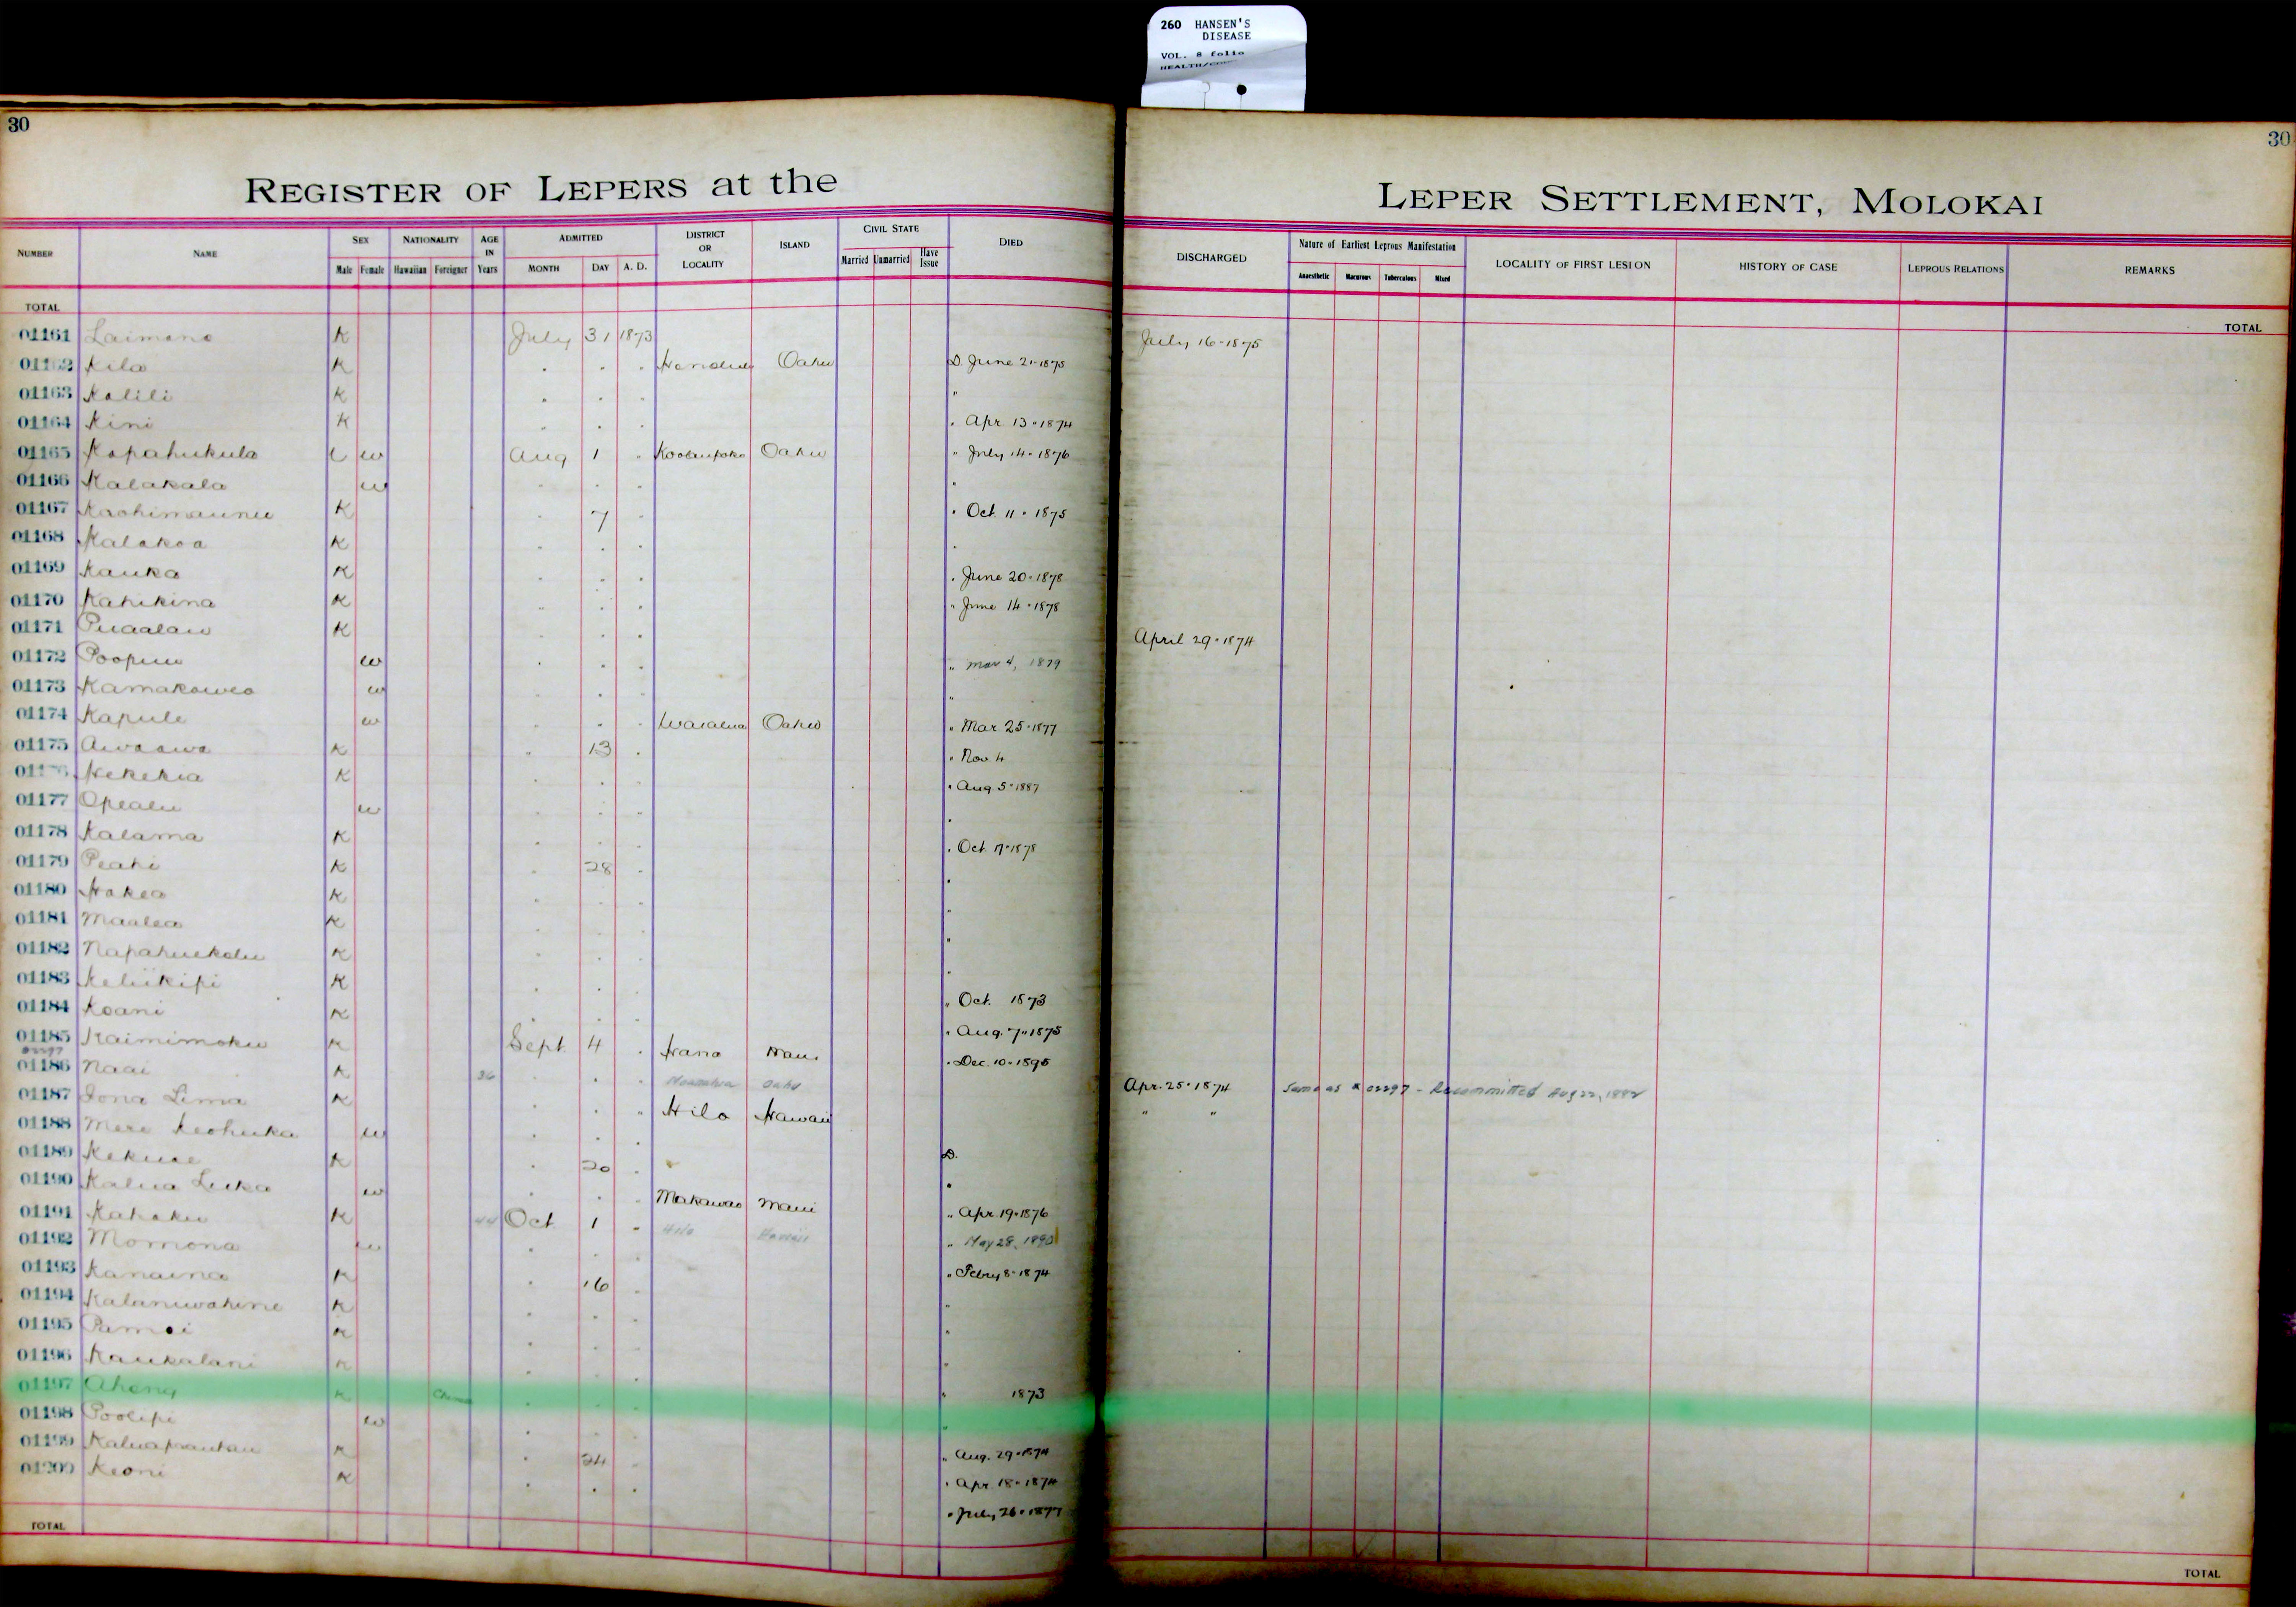 260 HANSEN'S
DISEASE
VOL. 8 folio
30
30
REGISTER OF LEPERS at the
LEPER SETTLEMENT, MOLOKAI
NUMBER NAME SEX Male Female NATIONALITY Hawaiian Foreigner AGE IN Years ADMITTED MONTH DAY A. D. DISTRICT OR LOCALITY ISLAND CIVIL STATE Married Unmarried Have Issue DIED
DISCHARGED Nature of Earliest Leprous Manifestation Anaesthetic Macurous Tuberculous Mixed LOCALITY OF FIRST LESION HISTORY OF CASE LEPROUS RELATIONS REMARKS
TOTAL
TOTAL
01161 Laimana K July 31 1873 July 16-1875
01162 Kila K . . . Honolulu Oahu D. June 21-1875
01163 Kalili K . . . "
01164 Kini K . . . . Apr. 13-1874
01165 Kapahukula w Aug 1 . Koolaupoko Oahu " July 14-1876
01166 Kalakala w . . . .
01167 K . 7 . . Oct. 11-1875
01168 Kalakoa K . . . .
01169 Kauka K . . . . June 20-1878
01170 Kahikina K . . . " June 14-1878
01171 Puaalau K . . . April 29-1874
01172 w . . . " Mar 4, 1879
01173 Kamakawea w . . . "
01174 Kapule w . . . Waialua Oahu " Mar. 25-1877
01175 Awaawa K . 13 . . Nov. 4
Kekekia K . . . . Aug 5-1887
01177 Opealu w . . . .
01178 Kalama K . . . . Oct. 17-1878
01179 Peahi K . 28 . .
01180 Hakea K . . . .
01181 Maalea K . . . .
01182 Napahuekolu K . . . .
01183 Keliikipi K . . . " Oct. 1873
01184 Koani K . . . . Aug. 7-1875
01185 Kaimimoku K Sept. 4 . Hana Maui . Dec. 10-1895
01186 Naai K 36 . . Oahu Apr. 25-1874 Same as # 02297 - Recommitted Aug 22, 1882
01187 Iona Lima K . . . Hilo Hawaii " "
01188 Mere Keohuka w . . .
01189 Kekuae K . 20 . D.
01190 Kalua Luka w . . . Makawao Maui .
01191 Kahaku K 44 Oct 1 . Hilo Hawaii " Apr. 19-1876
01192 Momona w . . . " May 28, 1890
01193 Kanaina K . 16 . " Febry 8-1874
01194 Kalaniwahine K . . . "
01195 K . . . "
01196 Kaukalani K . . . "
01197 Ahong K . . . " 1873
01198 Poolipi w . . . "
01199 K . 24 . " Aug. 29-1874
01200 Keoni K . . . . Apr. 18-1874
. July 26-1877
TOTAL
TOTAL